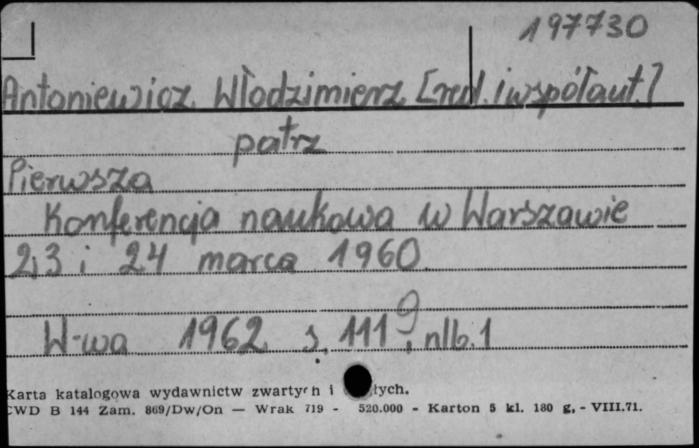 197730
Antoniewicz Włodzimierz [red. i współaut.]
patrz
Pierwsza
Konferencja naukowa w Warszawie
23 i 24 marca 1960
W-wa 1962 s. 111, nlb. 1
Karta katalogowa wydawnictw zwartych i
CWD B 144 Zam. 869/Dw/On — Wrak 719 - 520.000 - Karton 5 kl. 180 g, - VIII.71.